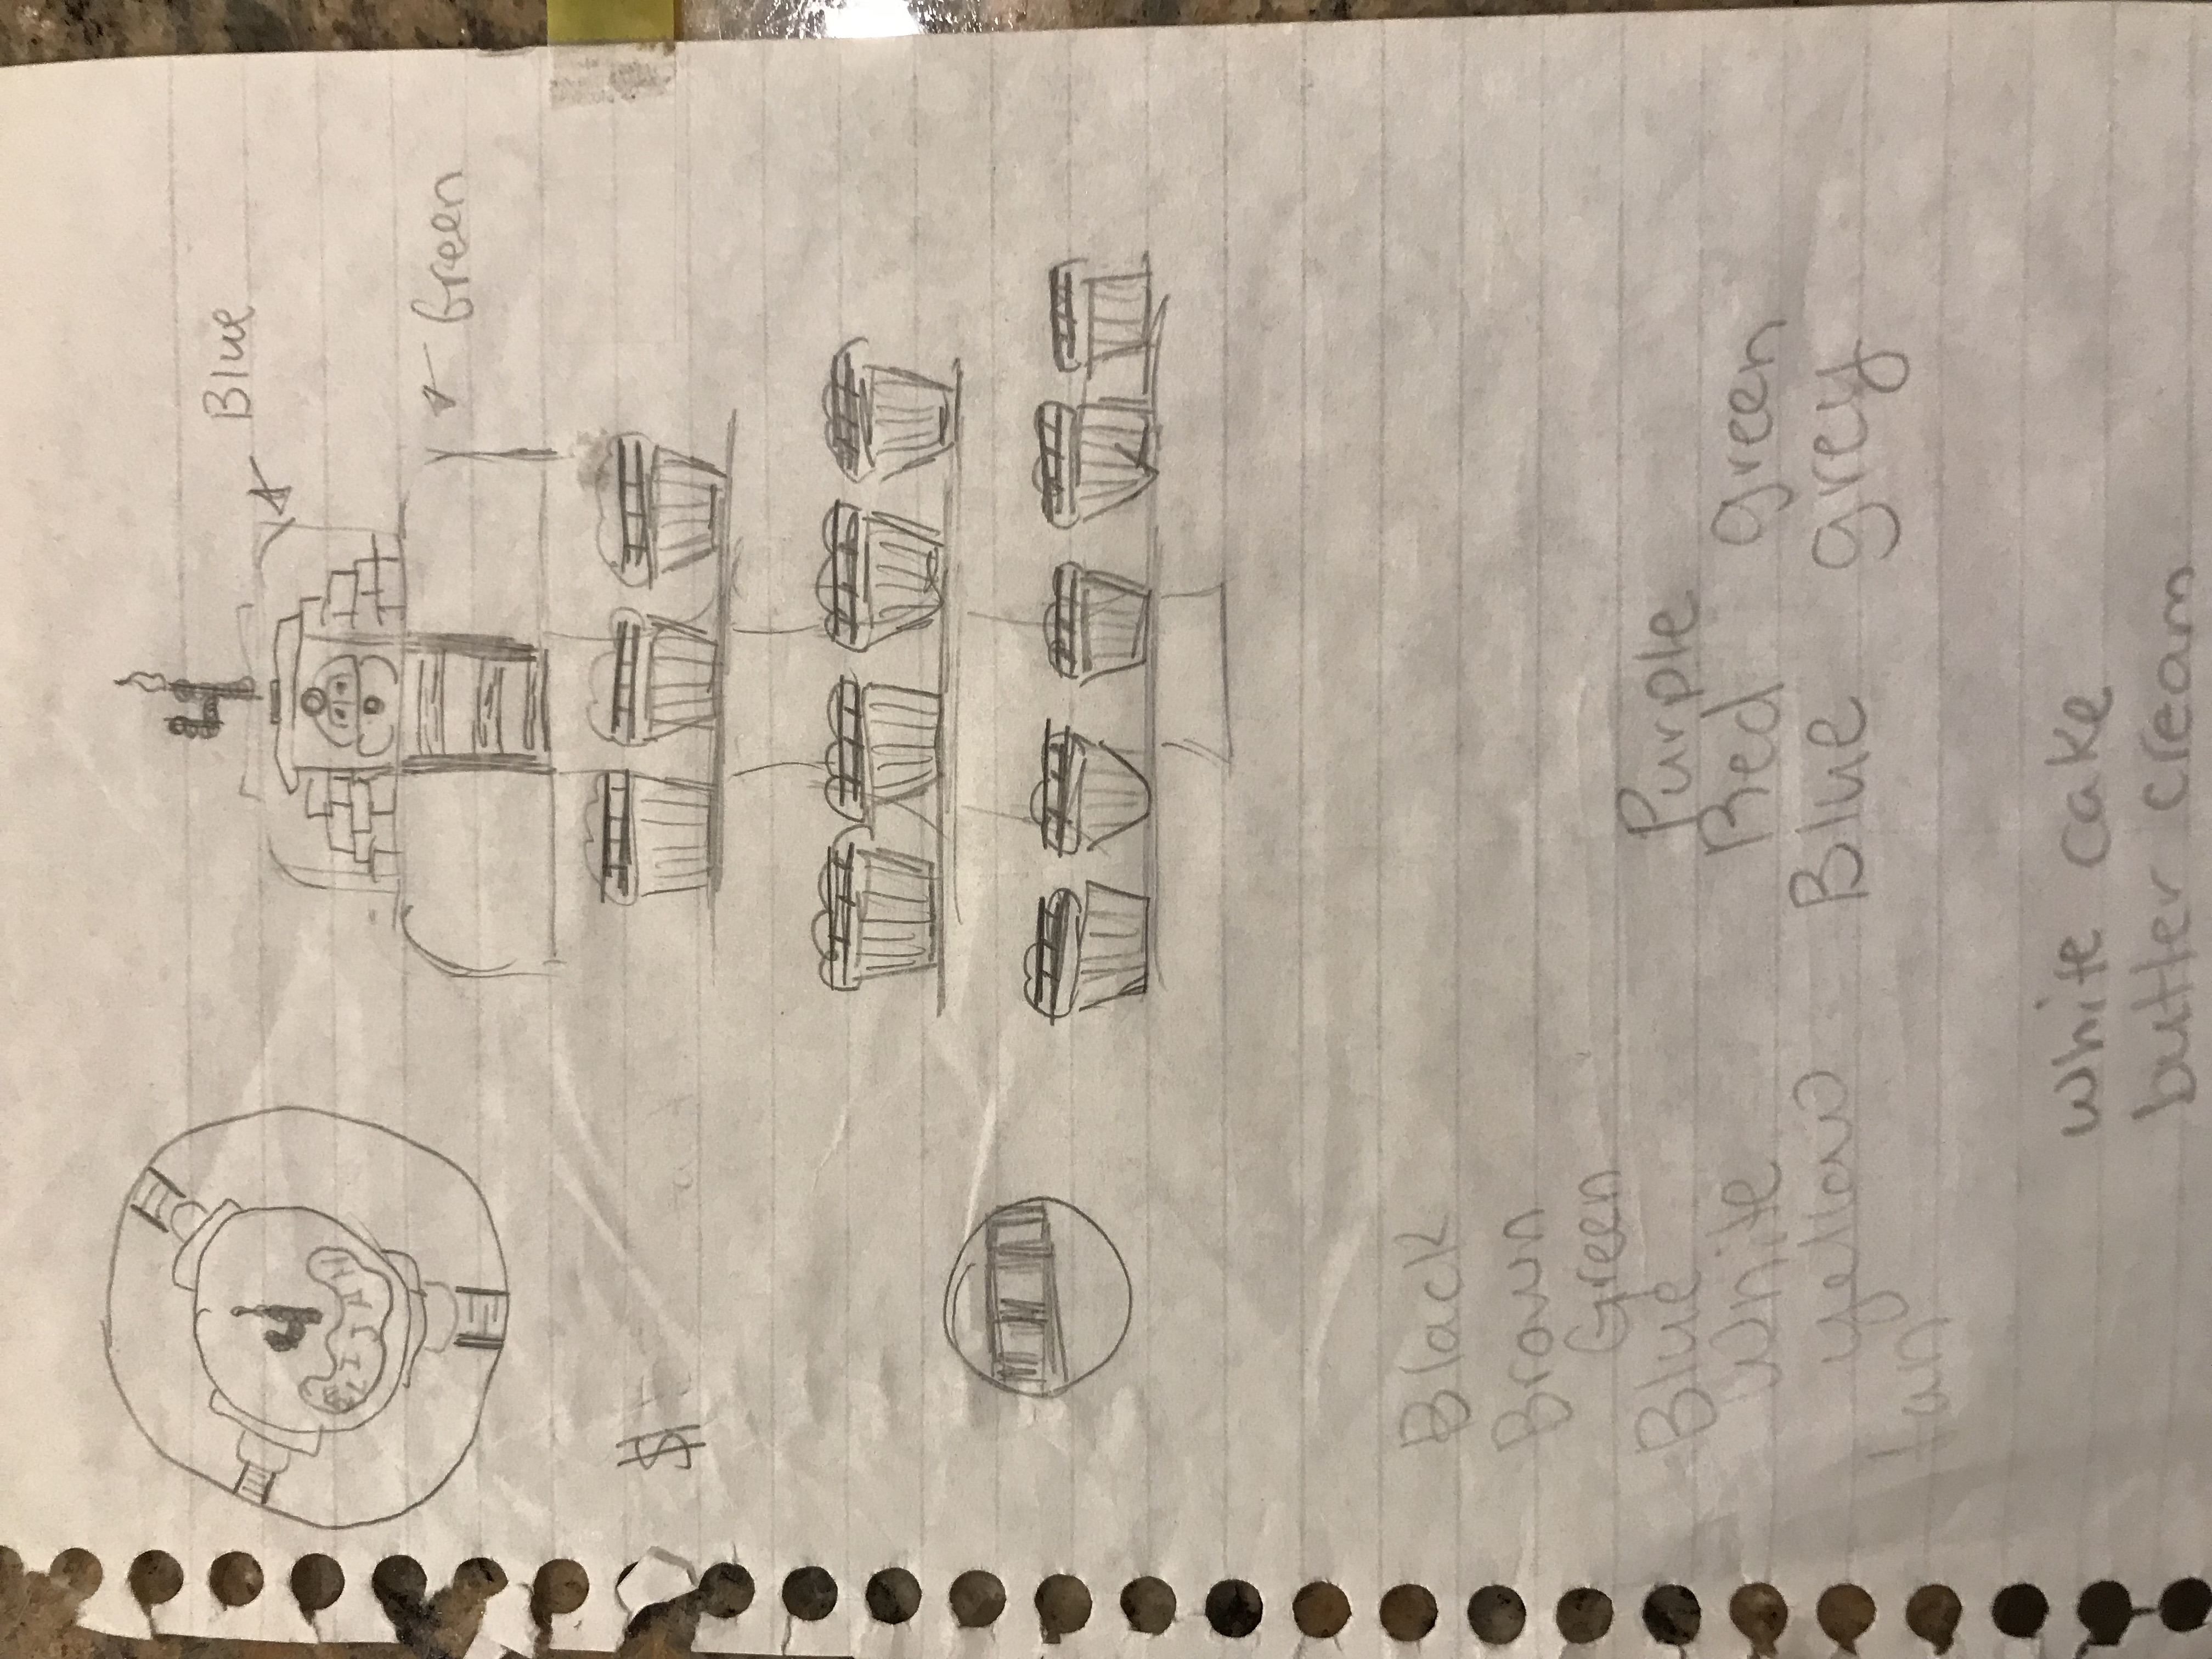 4
4
Blue
Green
$
Black
Brown
Green
Blue
White
yellow
tan
Purple
Red green
Blue grey
white cake
butter cream